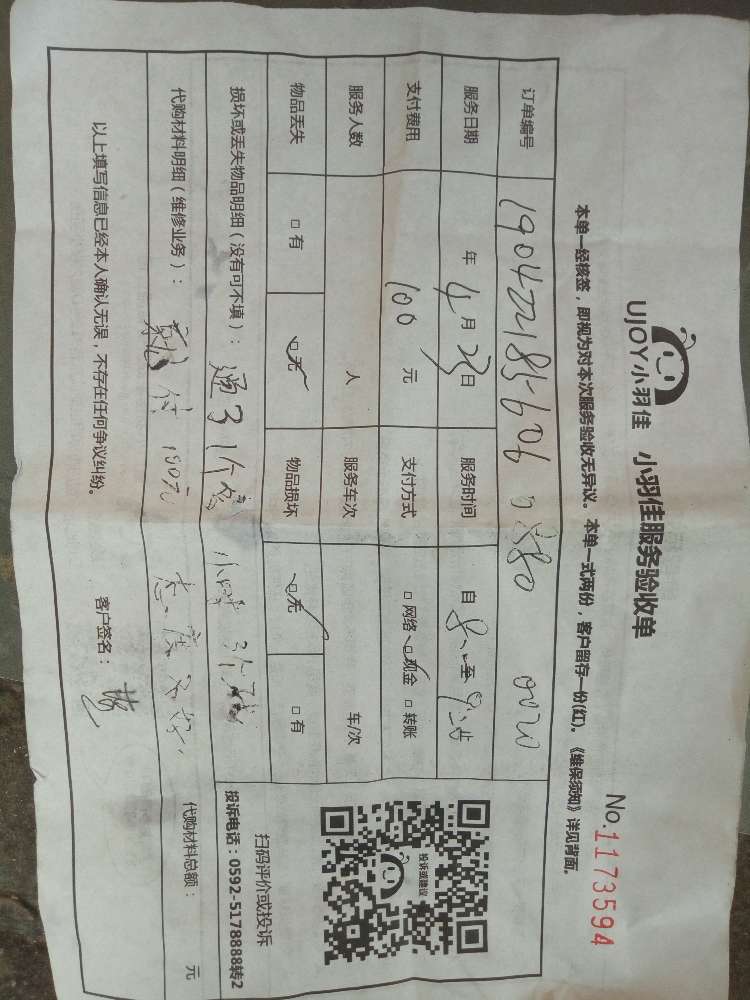 UJOY小羽佳 小羽佳服务验收单
No:1173594
本单一经核签，即视为对本次服务验收无异议。本单一式两份，客户留存一份(红)。《维保须知》详见背面。
订单编号 0020
服务日期 年 4 月 日 服务时间 自 至
支付费用 100 元 支付方式 □ 网络 □ 现金 □ 转账
服务人数 人 服务车次 车/次
物品丢失 □ 有 □ 无 物品损坏 □ 无 □ 有
损坏或丢失物品明细（没有可不填）： 通 3 个
代购材料明细（维修业务）： 付 100元 态度不好 代购材料总额： 元
以上填写信息已经本人确认无误，不存在任何争议纠纷。 客户签名：
投诉或建议
扫码评价或投诉
投诉电话：0592-5178888转2